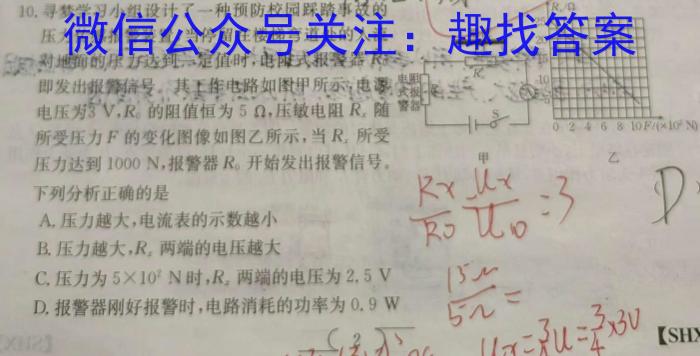 10. 寻梦学习小组设计了一种预防校园踩踏事故的
微信公众号关注：趣找答案
对地面的压力达到一定值时,电阻式报警器 R₀
即发出报警信号。其工作电路如图甲所示,电源
电压为3 V,R₀ 的阻值恒为 5 Ω,压敏电阻 Rₓ 随
所受压力 F 的变化图像如图乙所示,当 Rₓ 所受
压力达到 1000 N,报警器 R₀ 开始发出报警信号。
下列分析正确的是
A. 压力越大,电流表的示数越小
B. 压力越大,Rₓ 两端的电压越大
C. 压力为 5×10² N 时,Rₓ 两端的电压为 2.5 V
D. 报警器刚好报警时,电路消耗的功率为 0.9 W
电阻
式报
警器
S
甲
Rₓ/Ω
0 2 4 6 8 10 F/(×10² N)
乙
Rx/R0 Ux/U0 =3
D
15Ω/5Ω =
Ux=3/4U=3/4×3V
【SHX